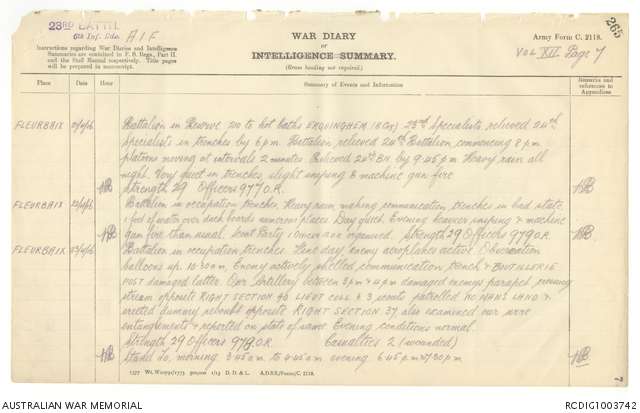 23RD BATTN.
6th Inf. Bde. A.I.F.
265
WAR DIARY
or
INTELLIGENCE SUMMARY.
(Erase heading not required.)
Army Form C. 2118.
Vol XII Page 7
Instructions regarding War Diaries and Intelligence
Summaries are contained in F. S. Regs., Part II.
and the Staff Manual respectively. Title pages
will be prepared in manuscript.
Place Date Hour Summary of Events and Information Remarks and
references to
Appendices
FLEURBAIX Battalion in Reserve 200 to hot baths ERQUINGHEM 23rd Specialists relieved 24th
Specialists in trenches by 6 p.m. Battalion relieved 24th Battalion, commencing 8 p.m.
platoons moving at intervals 2 minutes. Relieved 24th BN. by 9.45 p.m. Heavy rain all
night. Very quiet in trenches, slight sniping & machine gun fire.
Strength 29 Officers 977 O.R.
FLEURBAIX Battalion in occupation trenches. Heavy rain, making communication trenches in bad state
1 foot of water over duck boards numerous places. Day quiet. Evening heavier sniping & machine
gun fire than usual. Scout Party 1 Officer and organised. Strength 29 Officers 979 O.R.
FLEURBAIX Battalion in occupation trenches. Fine day, enemy aeroplanes active. Observation
balloons up. 10.30 a.m. Enemy actively shelled communication trench & BUTHLERIE
POST damaged latter. Our Artillery between 3 p.m & 4 p.m damaged enemys parapet
stream opposite RIGHT SECTION LIEUT & 3 scouts patrolled NO MANS LAND &
erected dummy opposite RIGHT SECTION 37 also examined our wire
entanglements & reported on state of same. Evening conditions normal.
Strength 29 Officers 978 O.R. Casualties 2 (wounded)
Stand to, morning 3.45 a.m. to 4.45 a.m. evening 6.45 p.m. 7.30 p.m
D. D. & L. A.D.S.S./Forms/C. 2118.
AUSTRALIAN WAR MEMORIAL
RCDIG1003742